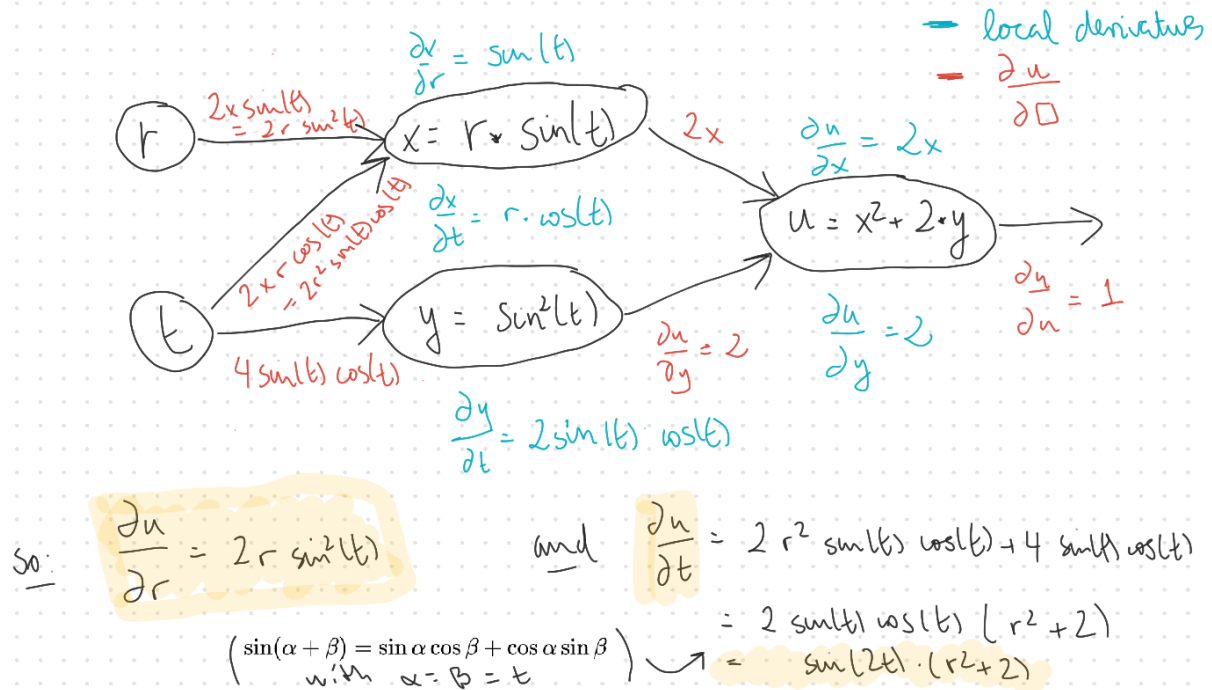 local derivatives
∂u/∂□
∂x/∂r = sin(t)
2x sin(t)
= 2r sin²(t)
r
x = r * sin(t)
2x
∂u/∂x = 2x
∂x/∂t = r · cos(t)
2x r cos(t)
= 2r² sin(t) cos(t)
u = x² + 2 * y
∂u/∂u = 1
t
y = sin²(t)
∂u/∂y = 2
∂u/∂y = 2
4 sin(t) cos(t)
∂y/∂t = 2 sin(t) · cos(t)
so: ∂u/∂r = 2r sin²(t) and ∂u/∂t = 2 r² sin(t) cos(t) + 4 sin(t) cos(t)
= 2 sin(t) cos(t) (r² + 2)
(sin(α + β) = sin α cos β + cos α sin β
with α = β = t)
= sin(2t) · (r² + 2)